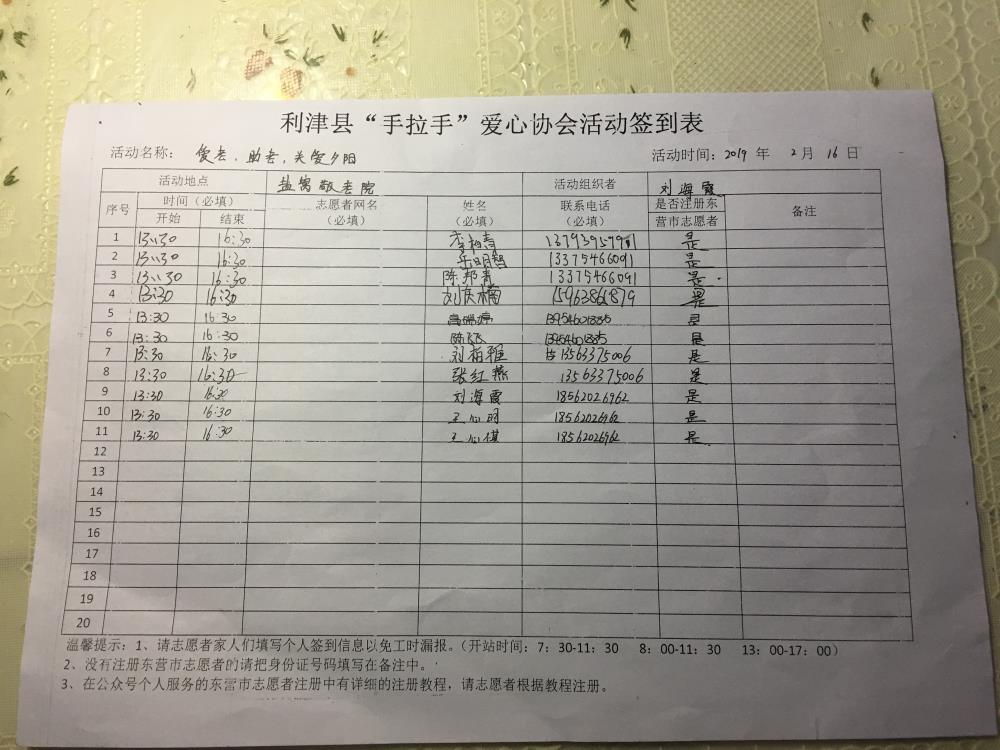 利津县“手拉手”爱心协会活动签到表
活动名称： 爱老、助老、关爱夕阳 活动时间：2019 年 2 月 16 日
活动地点 盐窝敬老院 活动组织者 刘海霞
序号 时间（必填） 志愿者网名（必填） 姓名（必填） 联系电话（必填） 是否注册东营市志愿者 备注
开始 结束
1 13:30 16:30 李柏青 是
2 13:30 16:30 13375466091 是
3 13:30 16:30 陈邦青 13375466091 是
4 13:30 16:30 刘庆楠 15963861879 是
5 13:30 16:30 13954601885 是
6 13:30 16:30 13954601885 是
7 13:30 16:30 13563375006 是
8 13:30 16:30 张红燕 13563375006 是
9 13:30 16:30 刘海霞 18562026962 是
10 13:30 16:30 王心明 18562026962 是
11 13:30 16:30 王心棋 18562026962 是
12
13
14
15
16
17
18
19
20
温馨提示：1、请志愿者家人们填写个人签到信息以免工时漏报。（开站时间：7：30-11：30 8：00-11：30 13：00-17：00）
2、没有注册东营市志愿者的请把身份证号码填写在备注中。
3、在公众号个人服务的东营市志愿者注册中有详细的注册教程，请志愿者根据教程注册。